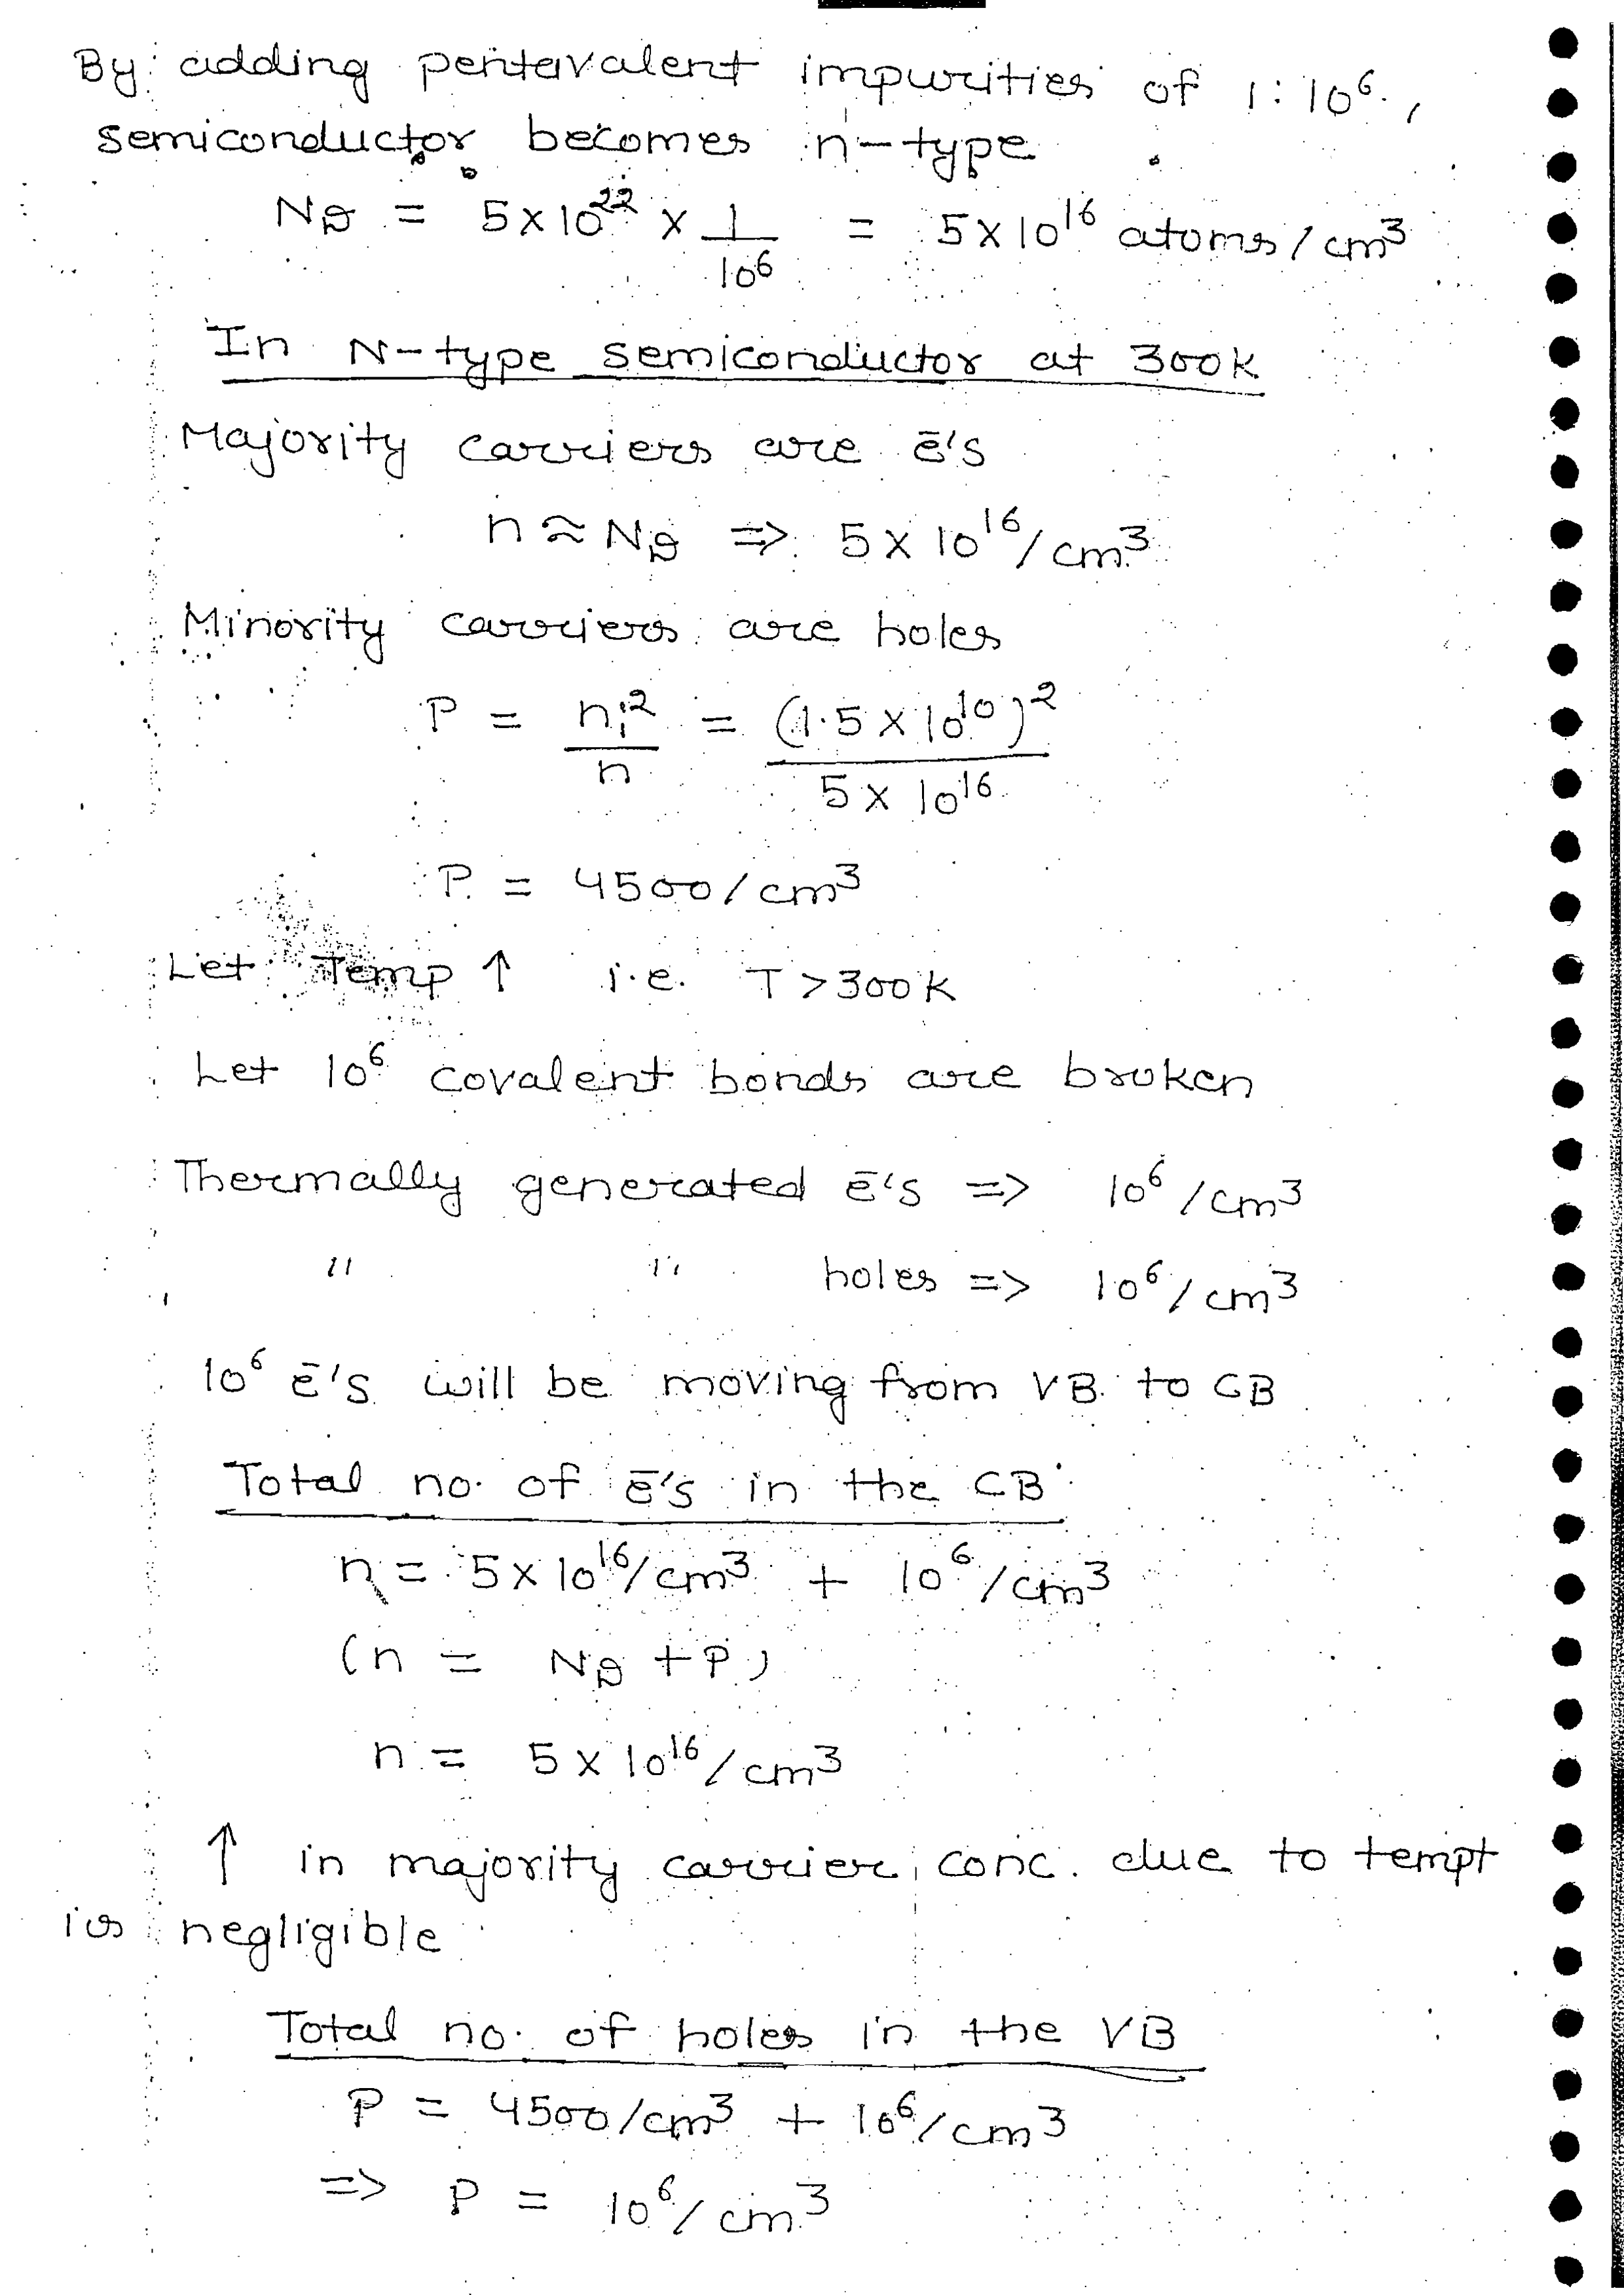 By adding pentavalent impurities of 1:10⁶,
semiconductor becomes n-type
N_D = 5×10²² × 1/10⁶ = 5×10¹⁶ atoms/cm³
In N-type semiconductor at 300K
Majority carriers are ē's
n ≈ N_D => 5×10¹⁶/cm³
Minority carriers are holes
P = nᵢ²/n = (1.5×10¹⁰)²/5×10¹⁶
P = 4500/cm³
Let Temp ↑ i.e. T>300K
Let 10⁶ covalent bonds are broken
Thermally generated ē's => 10⁶/cm³
" " holes => 10⁶/cm³
10⁶ ē's will be moving from VB to CB
Total no. of ē's in the CB
n = 5×10¹⁶/cm³ + 10⁶/cm³
(n = N_D + P)
n = 5×10¹⁶/cm³
↑ in majority carrier conc. due to tempt
is negligible
Total no. of holes in the VB
P = 4500/cm³ + 10⁶/cm³
=> P = 10⁶/cm³